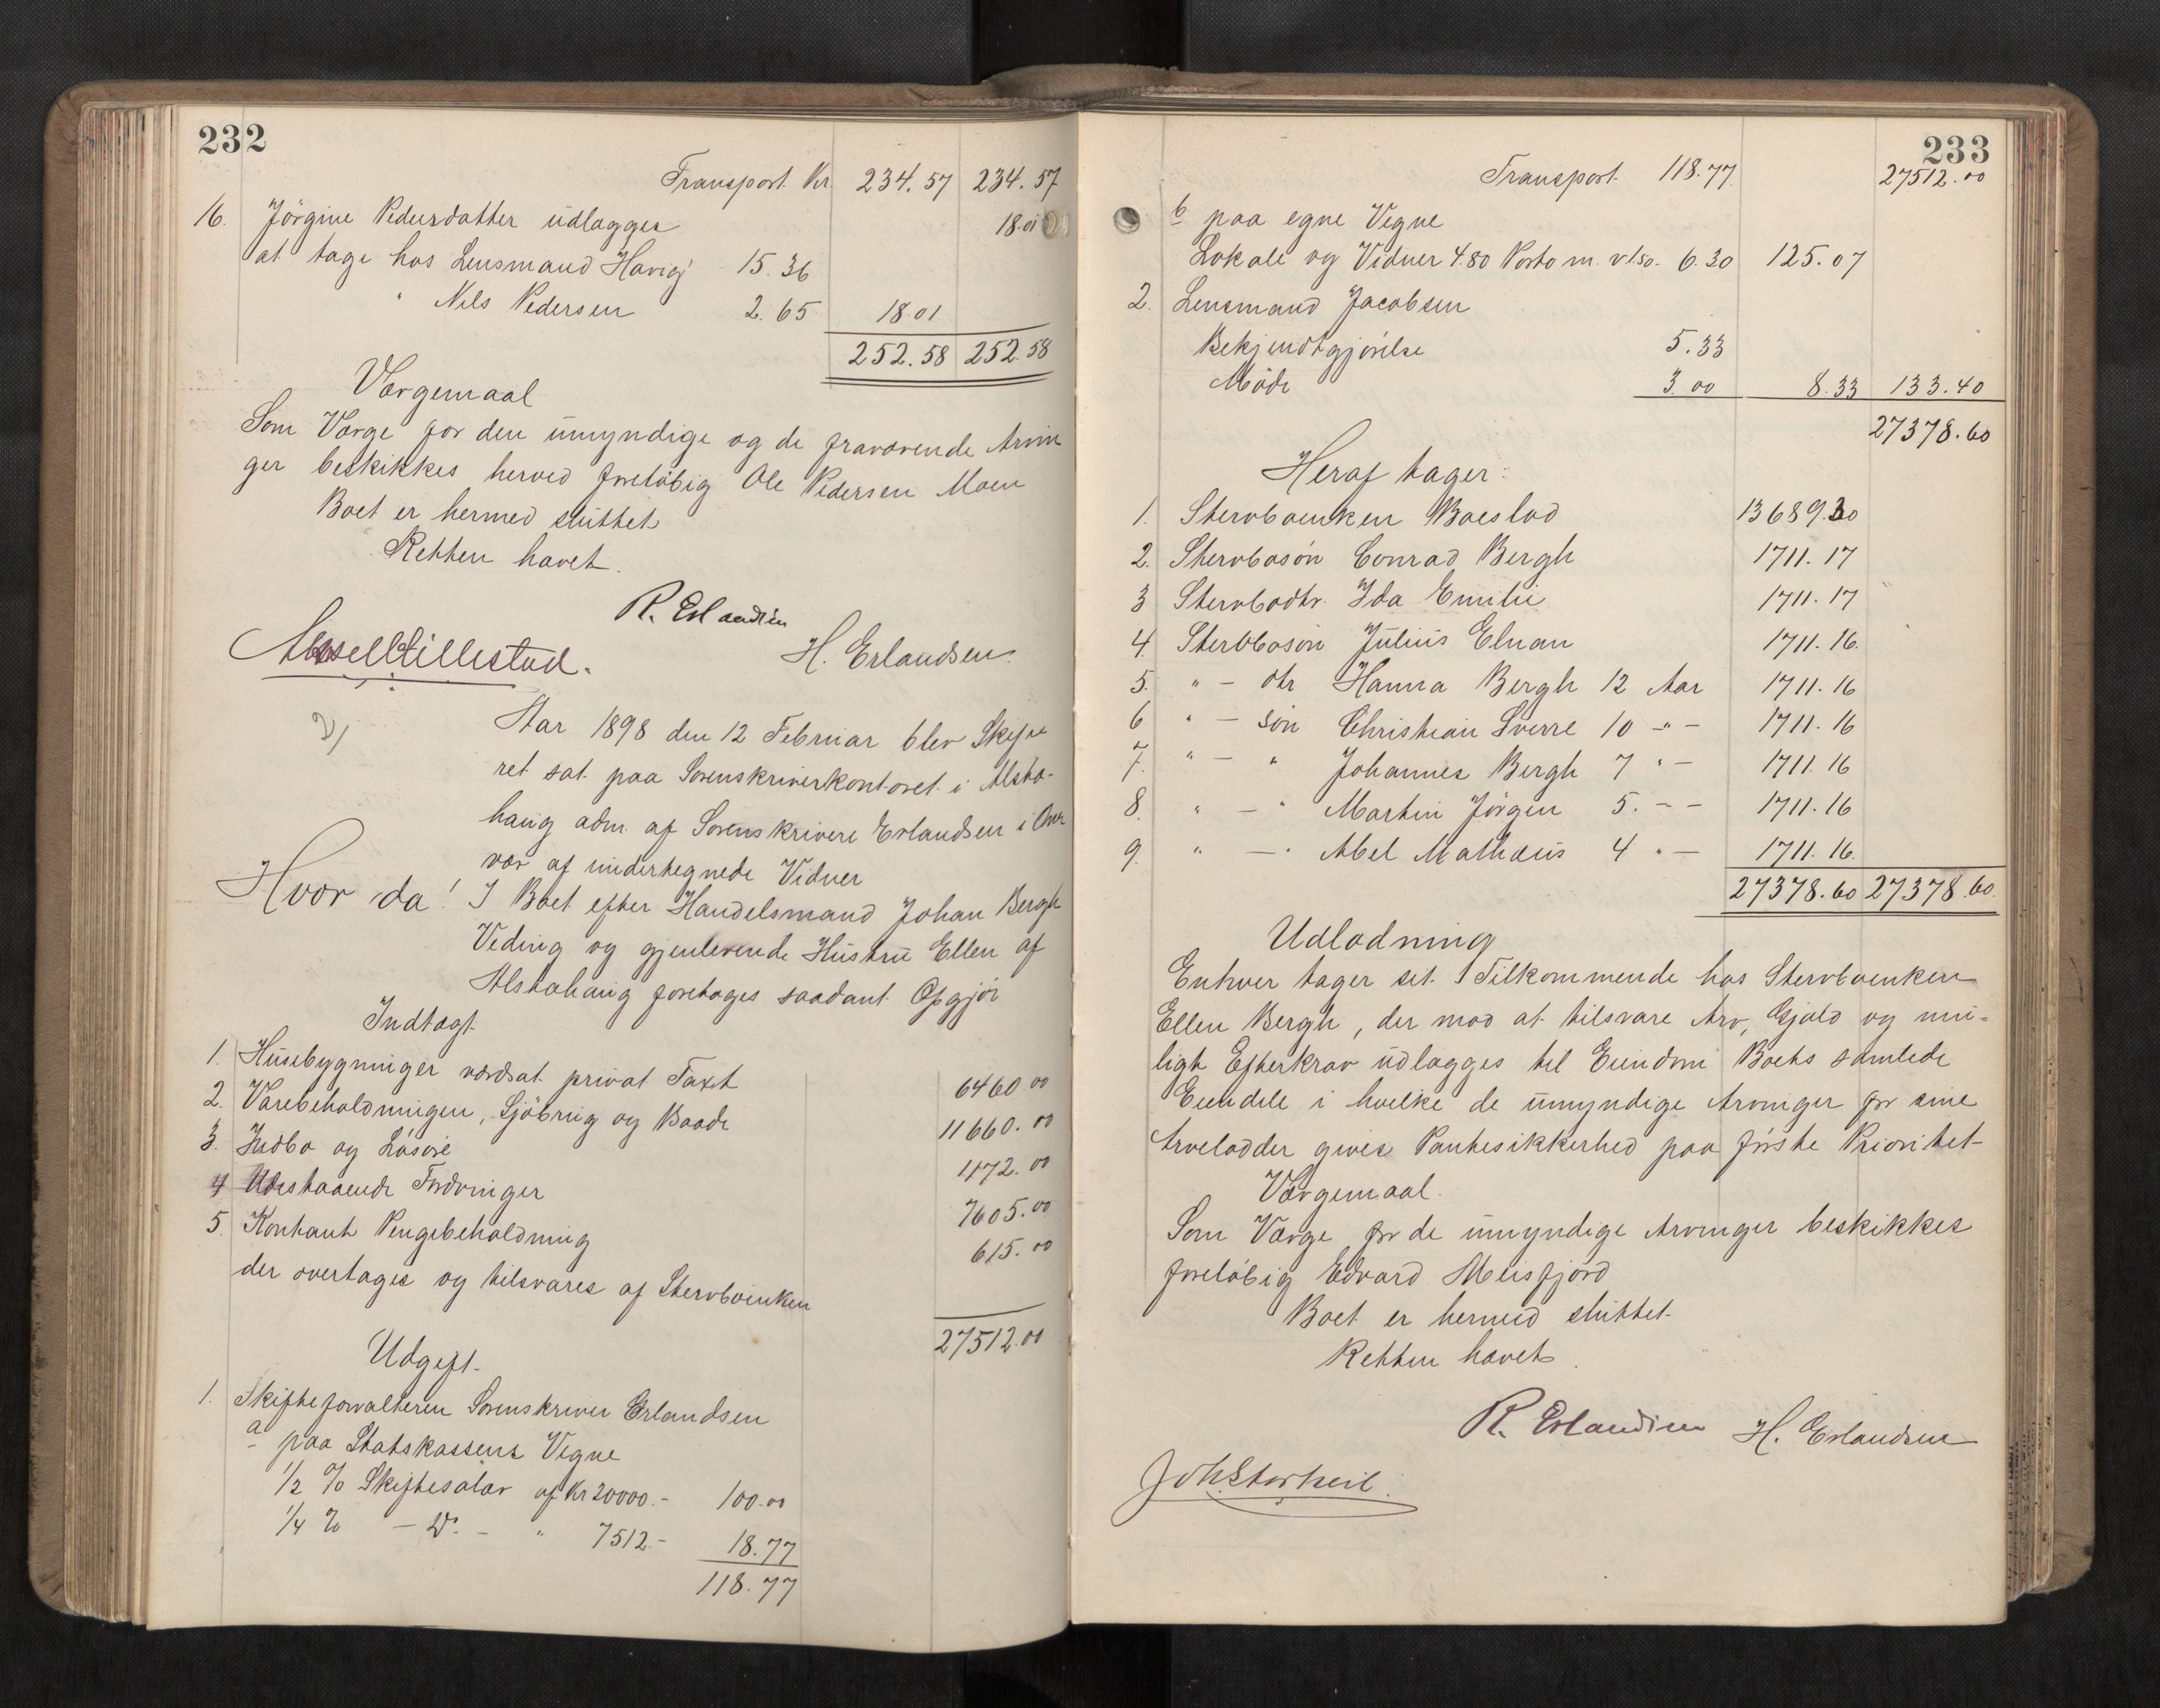 232
Transport Kr. 234.57 234.57
16. Jörgine Pedersdatter udlægges 18.01
at tage hos Lensmand Havig 15.36
" Nils Pedersen 2.65 18 01
252.58 252.58
Værgemaal
Som Værge for den umyndige og de fraværende Arvin
ger beskikkes herved foreløbig Ole Pedersen Moen
Boet er hermed sluttet
Retten hævet.
R. Erlandsen
H. Erlandsen.
Aar 1898 den 12 Februar blev Skifte
ret sat paa Sorenskriverkontoret i Alsta-
haug adm. af Sorenskriver Erlandsen i Over
vær af undertegnede Vidner
Hvor da! I Boet efter Handelsmand Johan Bergh
Veding og gjenlevende Hustru Ellen af
Alstahaug foretoges saadant Opgjør
Indtægt
1. Husebygninger værdsat privat Taxt 6460.00
2. Varebeholdningen, Sjöbrug og Baade 11660.00
3. Indbo og Løsøre 1172.00
4 Udestaaende Fordringer 7605.00
5. Kontant Pengebeholdning 615.00
der overtages og tilsvares af Stervboenken
27512.00
Udgift
1. Skifteforvalteren Sorenskriver Erlandsen
a paa Statskassens Vegne
1/2 % Skiftesalær af Kr 20000.- 100.00
1/4 % - Do. - " 7512.- 18.77
118.77
233
Transport 118.77. 27512.00
b paa egne Vegne
Lokale og Vidner 4.80 Porto m. v 1.50. 6.30 125.07
2. Lensmand Jacobsen
Bekjendtgjørelse 5.33
Møde 3.00 8.33 133.40
27378.60
Heraf tager:
1. Stervboenken Boeslod 13689.30
2. Stervbosøn Conrad Bergh 1711.17
3 Stervbodtr. Ida Emilie 1711.17
4. Stervbosøn Julius Elnan 1711.16.
5. " - dtr Hanna Bergh 12 Aar 1711.16
6 " - søn Christian Sverre 10 " - 1711.16
7. " - " Johannes Bergh 7 " - 1711.16
8. " - " Martin Jørgen 5. - - 1711.16
9. " - " Abel Mathæus 4 " - 1711.16.
27378.60 27378.60.
Udlodning
Enhver tager sit Tilkommende hos Stervboenken
Ellen Bergh, der mod at tilsvare Arv, Gjæld og mu-
ligt Efterkrav udlægges til Eiendom Boets samlede
Eiendele i hvilke de umyndige Arvinger for sine
Arvelodder gives Pantesikkerhed paa første Prioritet
Værgemaal.
Som Værge for de umyndige Arvinger beskikkes
foreløbig Edvard Meisfjord
Boet er hermed sluttet.
Retten hævet.
R. Erlandsen H. Erlandsen